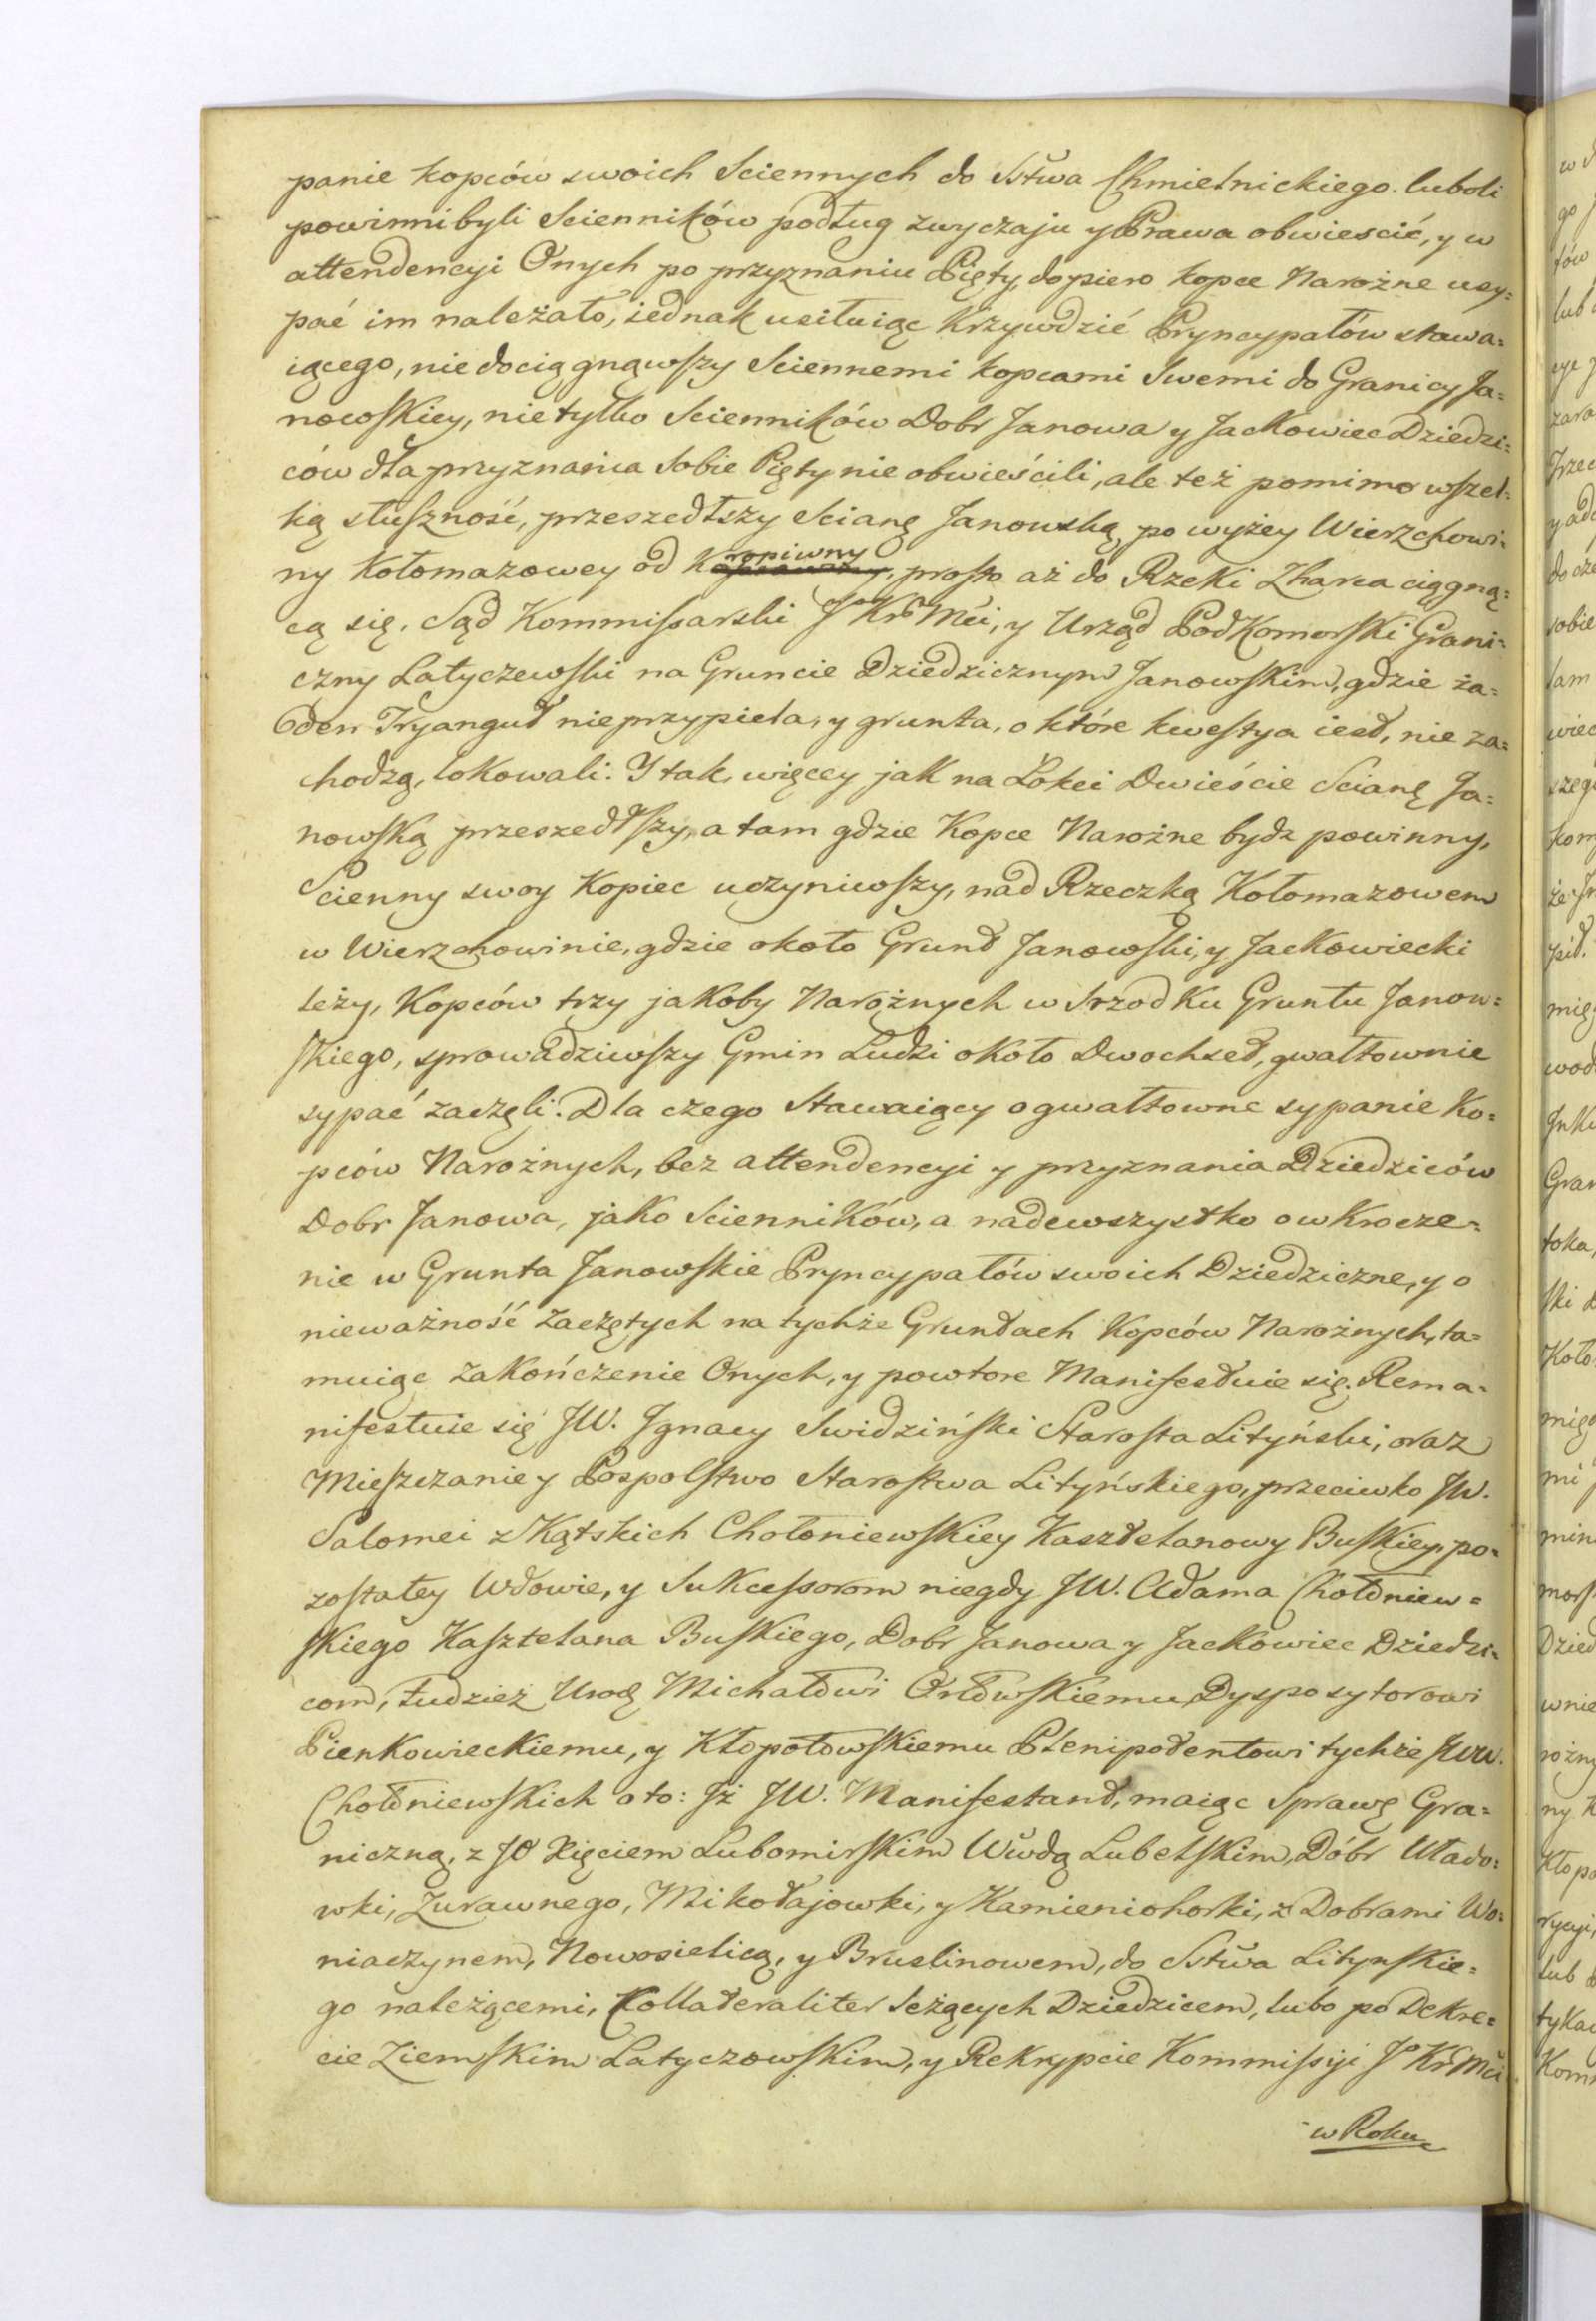 panie kopców swoich Sciennych do Sstwa Chmielnickiego. luboli
powinni byli Scienników podług zwyczaju y Prawa obwiescić, y w
attendencyi Onych po przyznaniu Pięty, dopiero kopce Narożne usy=
pać im należało, iednak usiłuiąc Krzywdzić Pryncypałow stawa=
iącego, nie dociągnąwszy Sciennemi kopcami Swemi do Granicy Ja=
nowskiey, nie tylko Scienników Dobr Janowa y Jackowiec Dziedzi=
ców dla przyznania sobie Pięty nie obwieścili, ale też pomimo wszel=
ką słuszność, przeszedłszy Scianę Janowską, po wyżey Wierzchowi=
ny Kołomazowey od Koropiwny, prosto aż do Rzeki Zharca ciągną=
cą się. Sąd Kommissarski J KrMci, y Urząd PodKomorski Grani=
czny Latyczewski na Gruncie Dziedzicznym Janowskim, gdzie ża=
den Tryanguł nieprzypiela, y grunta, o które kwestya iest, nie za=
chodzą, lokowali. Y tak, więcey jak na Łokci Dwieście Scianę Ja=
nowską przeszedłszy, a tam gdzie Kopce Narożne bydz powinny,
Scienny swoy Kopiec uczyniwszy, nad Rzeczką Kołomazowem
w Wierzchowinie, gdzie około Grunt Janowski, y Jackowiecki
leży, Kopców trzy jakoby Narożnych w Srzodku Gruntu Janow=
skiego, sprowadziwszy Gmin Ludzi około Dwochset, gwałtownie
sypać zaczęli. Dla czego Stawaiący o gwałtowne sypanie Ko=
pców Narożnych, bez attendencyi y przyznania Dziedziców
Dobr Janowa, jako Scienników, a nadewszystko o wkrocze=
nie w Grunta Janowskie Pryncypałów swoich Dziedziczne, y o
nieważność zaczętych na tychże Gruntach Kopców Narożnych, ta=
muiąc zakończenie Onych, y powtore Manifestuie się. Rema=
nifestuie się JW. Jgnacy Swidziński Starosta Lityński, oraz
Mieszczanie y Pospolstwo Starostwa Lityńskiego, przeciwko JW.
Salomei z Kątskich Chołoniewskiey Kasztelanowy Buskiey, po=
zostałey Wdowie, y Sukcessorom niegdy JW. Adama Chołoniew=
skiego Kasztelana Buskiego, Dobr Janowa y Jackowiec Dziedzi=
com, tudzież Urod Michałowi Orłowskiemu Dysposytorowi
Pienkowieckiemu, y Kłopotowskiemu Plenipotentowi tychże JWW.
Chołoniewskich o to: Jż JW. Manifestant, maiąc Sprawę Gra=
niczną, z JO Xięciem Lubomirskim Wwdą Lubelskim, Dóbr Ułado=
wki, Zurawnego, Mikołajowki, y Kamieniohorki, z Dobrami Wo=
niaczynem, Nowosielicą, y Bruslinowem, do Sstwa Lityńskie=
go należącemi, Collateraliter leżących Dziedzicem, lubo po Dekre=
cie Ziemskim Latyczowskim, y Rekrypcie Kommissyi J KrMci
w Roku